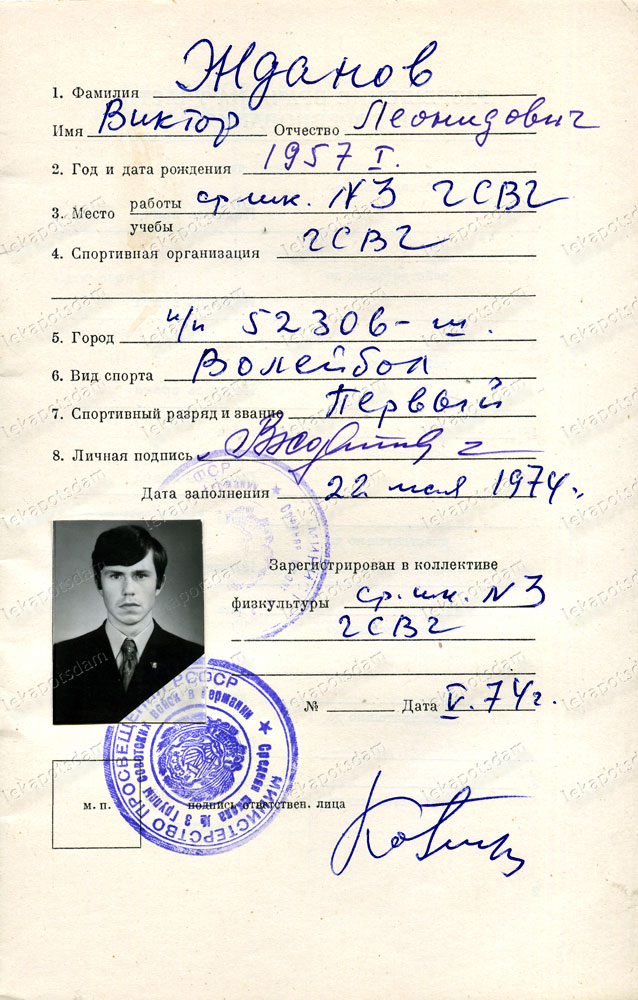 1. Фамилия Жданов
Имя Виктор Отчество Леонидович
2. Год и дата рождения 1957 I.
3. Место работы учебы ср. шк. N3 ГСВГ
4. Спортивная организация ГСВГ
5. Город п/п 52306-ш.
6. Вид спорта Волейбол
7. Спортивный разряд и звание Первый
8. Личная подпись
Дата заполнения 22 мая 1974г.
Зарегистрирован в коллективе
физкультуры ср. шк. N3
ГСВГ
№ Дата V.74г.
МИНИСТЕРСТВО ПРОСВЕЩЕНИЯ РСФСР
Средняя школа № 3 Группы советских войск в Германии
м. п. подпись ответствен. лица
lekapotsdam